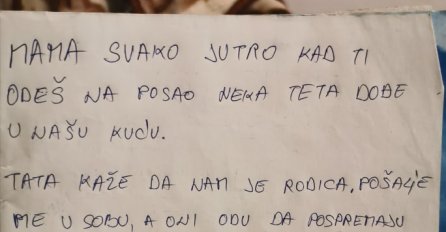 MAMA SVAKO JUTRO KAD TI
ODEŠ NA POSAO NEKA TETA DOĐE
U NAŠU KUĆU.
TATA KAŽE DA NAM JE RODICA. POŠALJE
ME U SOBU, A ONI ODU DA POSPREMAJU